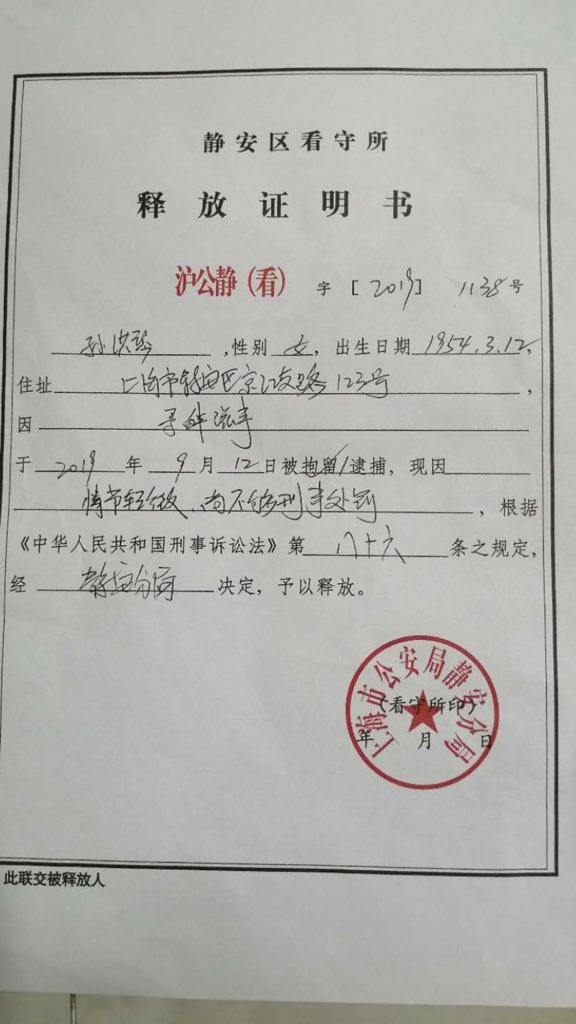 静安区看守所
释放证明书
沪公静（看） 字［2019］1138号
孙洪琴，性别 女，出生日期1954.3.12，
住址 上海市静安区京江支路123号，
因 寻衅滋事
于 2019 年 9 月 12 日被拘留/逮捕，现因
情节轻微、尚不够刑事处罚，根据
《中华人民共和国刑事诉讼法》第 八十六 条之规定，
经 静安分局 决定，予以释放。
上海市公安局静安分局
（看守所印）
年 月 日
此联交被释放人